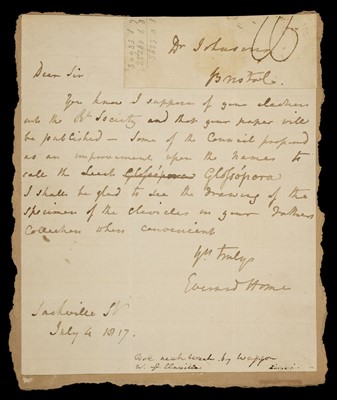 Dr Johnson
Bristol
Dear Sir
You know I suppose of your election
into the Rl Society and that your paper will
be published – Some of the Council proposed
as an improvement upon the names to
call the Leech Glossopora Glossópora
I shall be glad to see the drawing of the
specimen of the clavicles in your Brothers
Collection when convenient
yrs truly
Everard Home
Sackville St
July 4 1817.
Box next week by Waggon
W. of Clavicle